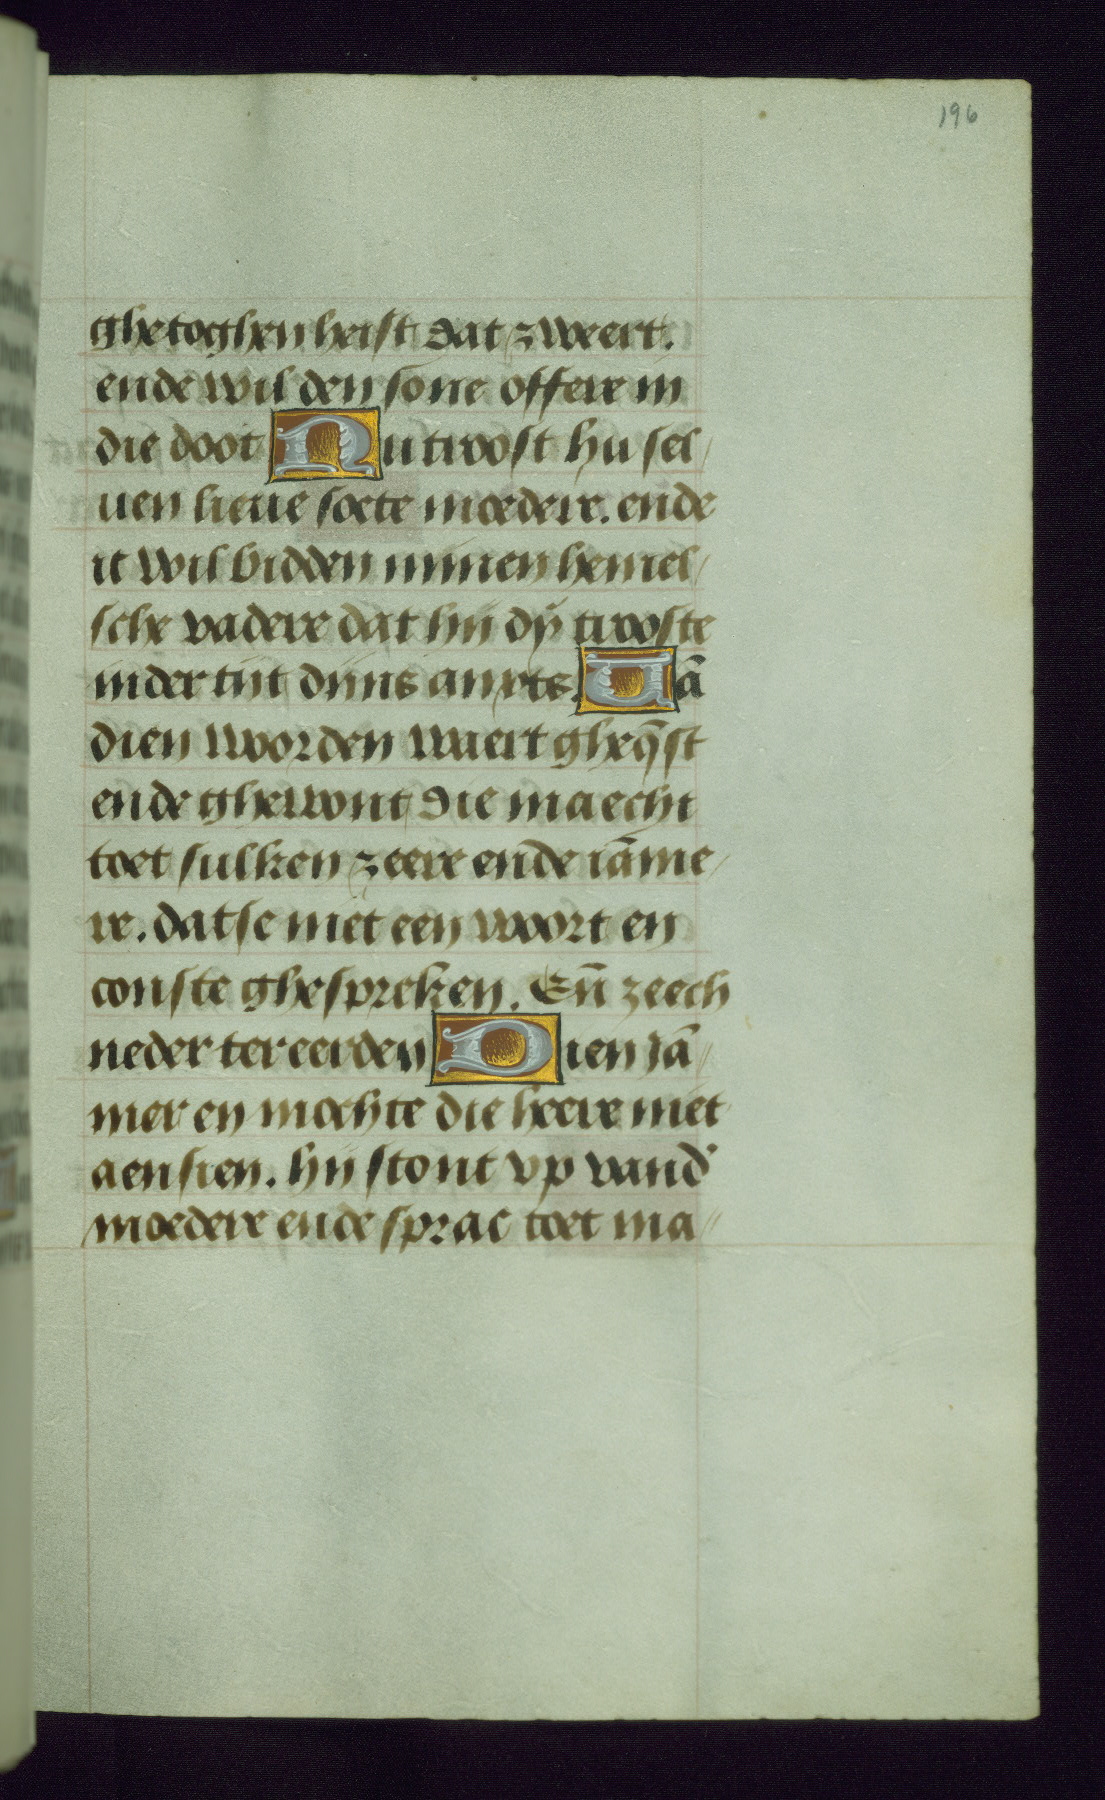 196
ghetoghen heist dat zweert.
ende wil den sone offere in
die doot Nu troost hu sel/
uen lieue soete moedere. ende
ic wil bidden minen hemel/
sche vadere dat hij dy trooste
in der tijt dijns anxts. Uā
dien woorden waert gheq̄st
ende ghewont die maecht
toet sulken zeere ende iāme/
re. datse niet een woort en
conste ghespreken. Eñ zeech
neder ter eerden Dien Jā//
mer en mochte die heere niet
aensien. hij stont vp vand'
moedere ende sprac toet ma//